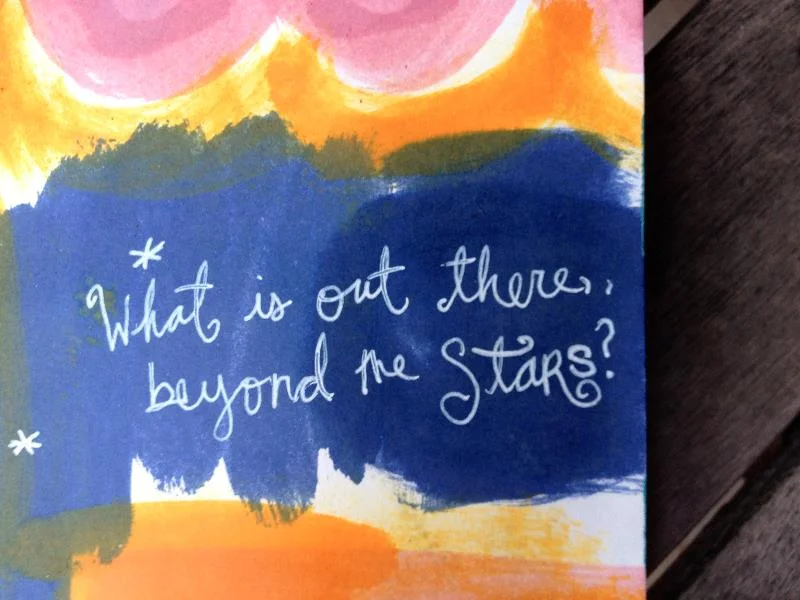 What is out there,,
beyond the Stars?